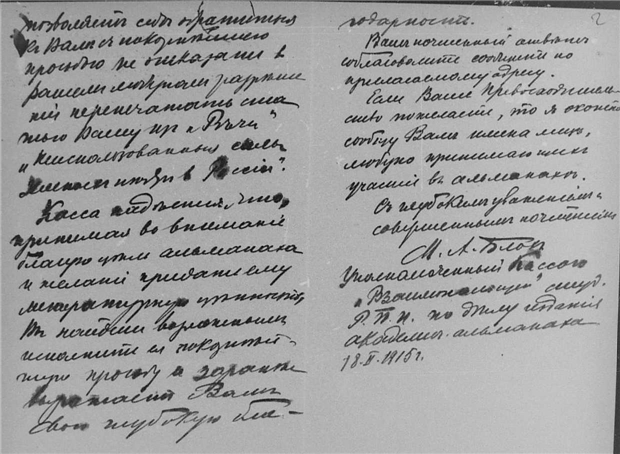 позволяетъ себѣ обратиться
къ Вамъ съ покорнѣйшею
просьбою не отказать в
разрѣше-
нiи перепечатать ста-
тью Вашу изъ „Рѣчи"
„Неиспользованныя силы
въ Россiи".
Касса надѣется, что,
принимая во вниманiе
благую цѣль альманаха
и желанiе придать ему
литературную цѣнность,
Вы найдете возможнымъ
исполнить ея покорнѣй-
шую просьбу и заранѣе
выражаетъ Вамъ
свою глубокую бла-
годарность.
2
Вашъ почтенный отвѣтъ
соблаговолите сообщить по
прилагаемому адресу.
Если Ваше Превосходитель-
ство пожелаетъ, то я охотно
сообщу Вамъ имена лицъ,
любезно принимающихъ
участiе въ альманахѣ.
Съ глубокимъ уваженiемъ и
совершеннымъ почтенiемъ
М. А. Блох
Уполномоченный Кассою
„Взаимопомощи" студ.
Р. П. И. по дѣлу изданiя
академ. альманаха
18.II.1915 г.